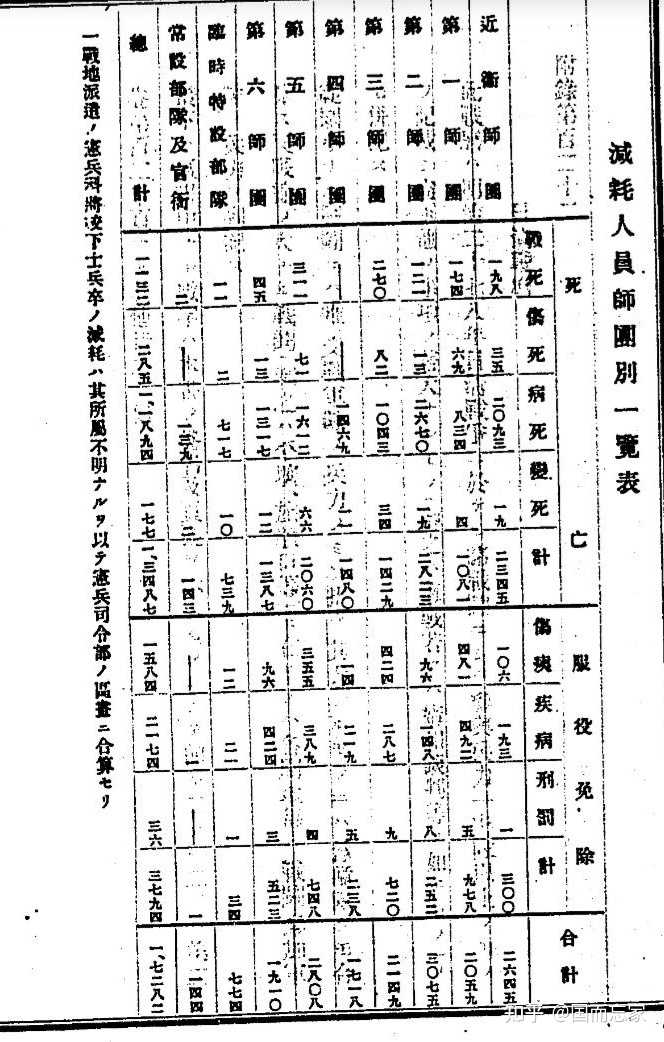 減耗人員師團別一覽表
附錄第百二十二
死亡 服役免除 合計
戰死 傷死 病死 變死 計 傷痍 疾病 刑罰 計
近衛師團 一九八 三五 二〇九三 一九 二三四五 一〇六 一九三 一 三〇〇 二六四五
第一師團 一七四 六九 八三四 四 一〇八一 四八一 四九二 五 九七八 二〇五九
第二師團 一二一 一三 二六七〇 一九 二八二三 九六 一四八 八 二五二 三〇七五
第三師團 二七〇 八二 一〇四三 三四 一四二九 四二四 二八七 九 七二〇 二一四九
第四師團 — — 一四六九 一一 一四八〇 一四 二一九 五 二三八 一七一八
第五師團 三一一 七一 一六一二 六六 二〇六〇 三五五 三八九 四 七四八 二八〇八
第六師團 四五 一三 一三一七 一二 一三八七 九六 四二四 三 五二三 一九一〇
臨時特設部隊 一一 二 七一七 一〇 七三九 一二 二一 一 三四 七七四
常設部隊及官衙 二 — 一三九 二 一四三 — 一 — 一 一四四
總計 一一三二 二八五 一、一八九四 一七七 一、三四八七 一五八四 二一七四 三六 三七九四 一、七二八二
一戰地派遣ノ憲兵科將校下士兵卒ノ減耗ハ其所屬不明ナルヲ以テ憲兵司令部ノ區畫ニ合算セリ
知乎 @国而忘家